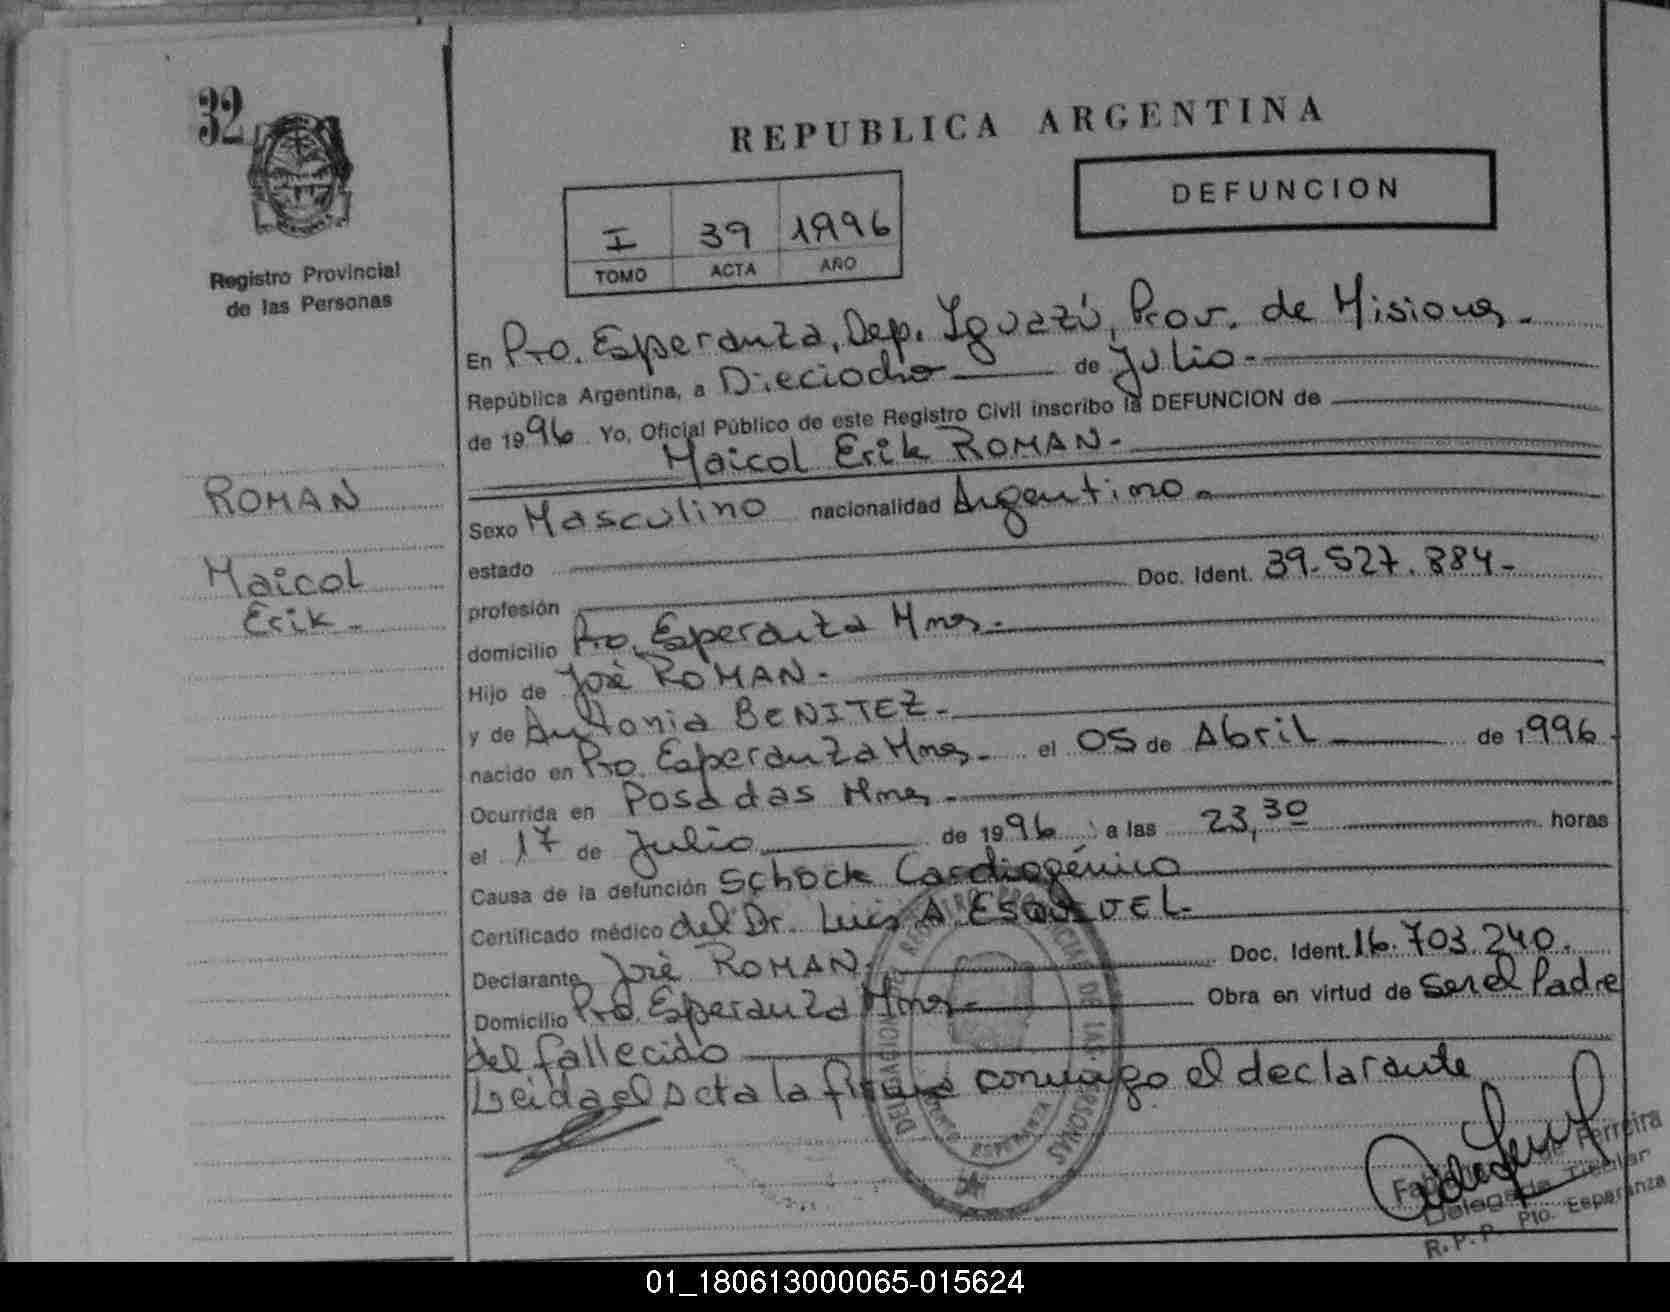 32
Registro Provincial
de las Personas
REPUBLICA ARGENTINA
DEFUNCION
I 39 1996
TOMO ACTA AÑO
En Pto. Esperanza, Dep. Iguazú, Prov. de Misiones.
República Argentina, a Dieciocho de Julio.
de 1996 Yo, Oficial Público de este Registro Civil inscribo la DEFUNCION de
Maicol Erik ROMAN.
ROMAN
Maicol
Erik.
Sexo Masculino nacionalidad Argentino.
estado
profesión Doc. Ident. 39.527.884.
domicilio Pto. Esperanza Mnes.
Hijo de José ROMAN.
y de Antonia BENITEZ.
nacido en Pto. Esperanza Mnes. el 05 de Abril de 1996.
Ocurrida en Posadas Mnes.
el 17 de Julio de 1996 a las 23,30 horas
Causa de la defunción Schock Cardiogénico
Certificado médico del Dr. Luis A ESQUIVEL.
Declarante José ROMAN. Doc. Ident. 16.703.240.
Domicilio Pto. Esperanza Mnes. Obra en virtud de Ser el Padre
del fallecido
Leida el acta la firma conmigo el declarante
REGISTRO PROVINCIAL DE LAS PERSONAS
ESPERANZA
de Ferreira
Delegada Titular
R.P.P. Pto. Esperanza
01_180613000065-015624